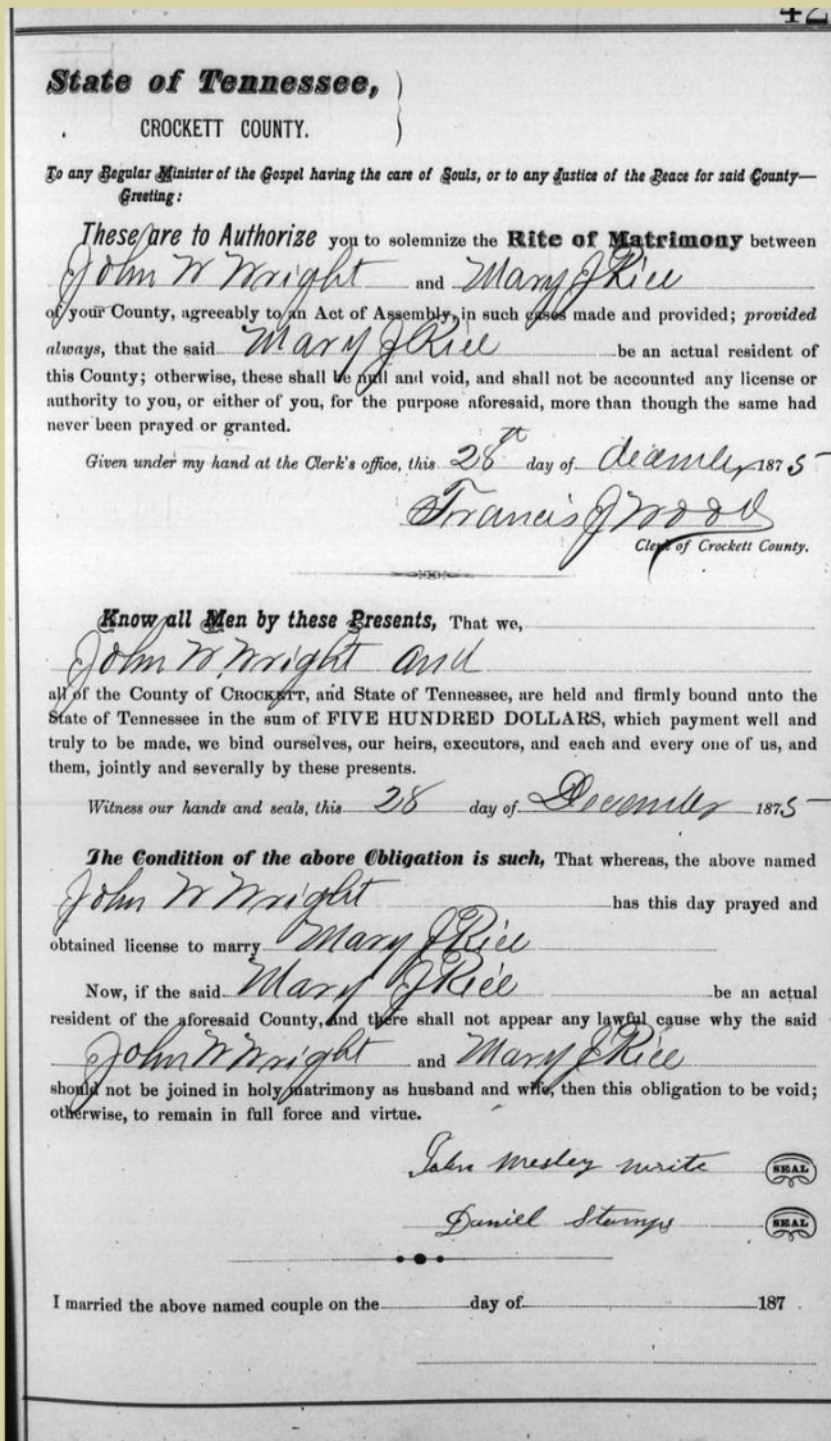 42
State of Tennessee, )
CROCKETT COUNTY. )
To any Regular Minister of the Gospel having the care of Souls, or to any Justice of the Peace for said County—
Greeting:
These are to Authorize you to solemnize the Rite of Matrimony between
John W Wright and Mary J Rice
of your County, agreeably to an Act of Assembly, in such cases made and provided; provided
always, that the said Mary J Rice be an actual resident of
this County; otherwise, these shall be null and void, and shall not be accounted any license or
authority to you, or either of you, for the purpose aforesaid, more than though the same had
never been prayed or granted.
Given under my hand at the Clerk's office, this 28th day of december 1875
Francis J Wood
Clerk of Crockett County.
Know all Men by these Presents, That we,
John W. Wright and
all of the County of CROCKETT, and State of Tennessee, are held and firmly bound unto the
State of Tennessee in the sum of FIVE HUNDRED DOLLARS, which payment well and
truly to be made, we bind ourselves, our heirs, executors, and each and every one of us, and
them, jointly and severally by these presents.
Witness our hands and seals, this 28 day of December 1875
The Condition of the above Obligation is such, That whereas, the above named
John W Wright has this day prayed and
obtained license to marry Mary J Rice
Now, if the said Mary J Rice be an actual
resident of the aforesaid County, and there shall not appear any lawful cause why the said
John W Wright and Mary J Rice
should not be joined in holy matrimony as husband and wife, then this obligation to be void;
otherwise, to remain in full force and virtue.
John Wesley write SEAL
Daniel Stamps SEAL
I married the above named couple on the day of 187 .